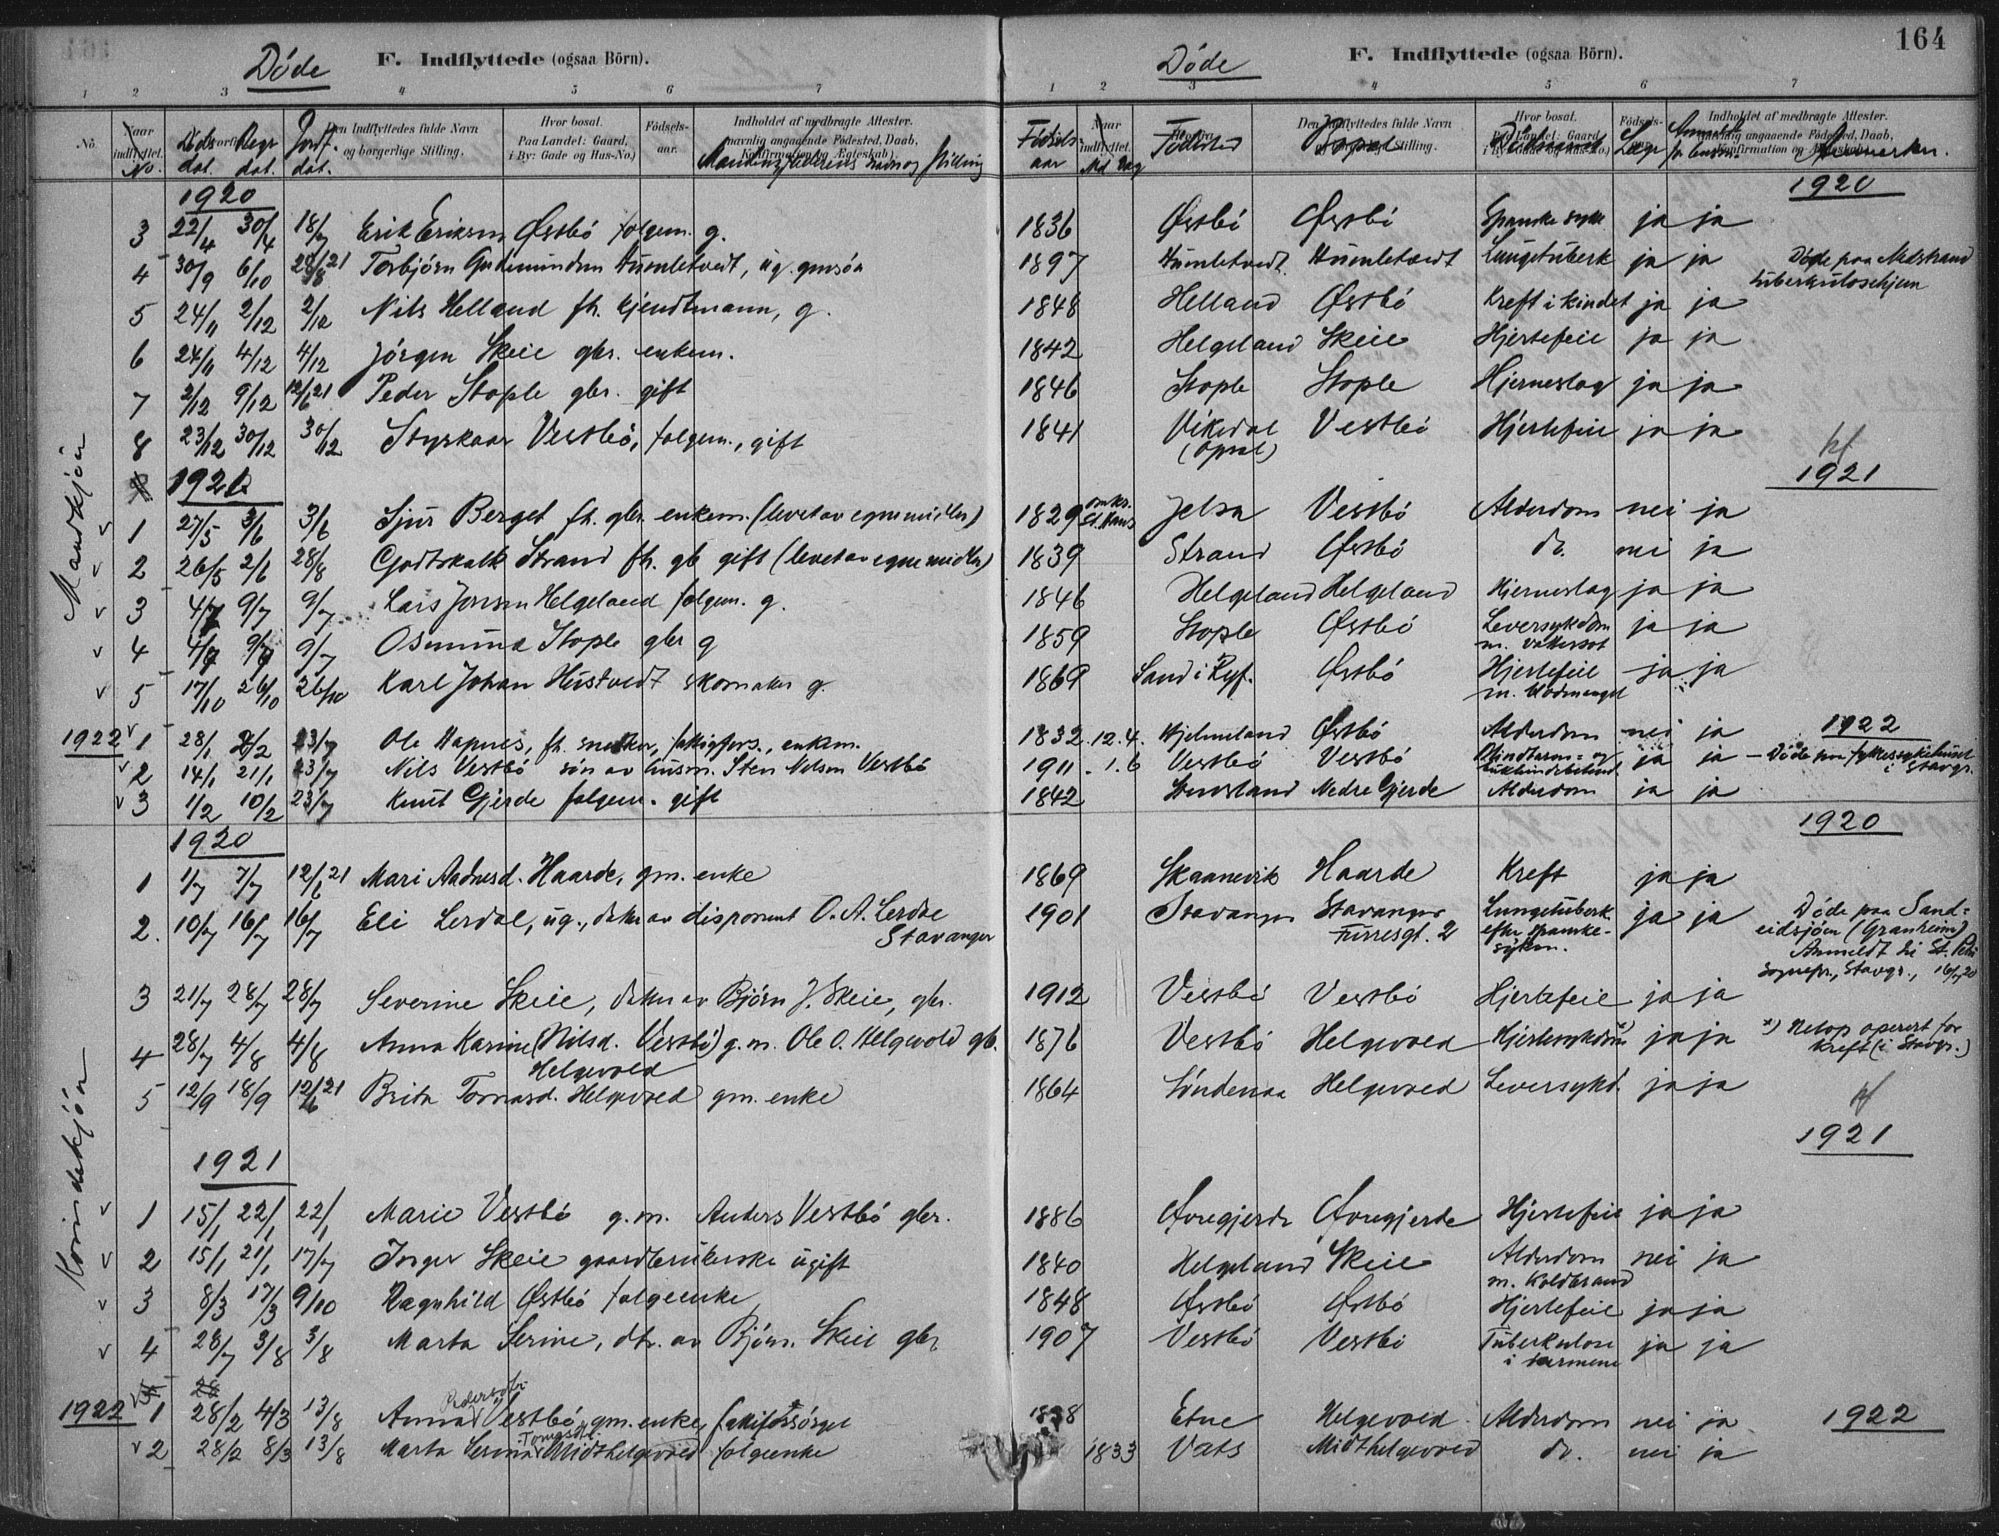 164
Døde F. Indflyttede (ogsaa Börn).
Døde F. Indflyttede (ogsaa Börn).
1 2 3 4 5 6 7
1 2 3 4 5 6 7
No. Naar indflyttet. No. Døds dat. Begr. dat. Jordf. dat. Den Indflyttedes fulde Navn og borgerlige Stilling. Hvor bosat. Paa Landet: Gaard, i By: Gade og Hus-No.) Fødsels-aar. Indholdet af medbragte Attester. navnlig angaaende Födested, Daab, Konfirmation og Ægteskab). Stilling
Fødsels aar Naar indflyttet. Md. Dag Fødested Den Indflyttedes fulde Navn Stilling. Bopæl Hvor bosat. Paa Landet: Gaard, i By: Gade og Hus-No.) Dødsaarsak Fødsels- Læge Indholdet af medbragte Attester. navnlig angaaende Födested, Daab, Konfirmation og Ægteskab). Anmerkn.
1920 1920
3 22/4 30/4 18/7 Erik Eriksen Østbö folgem. g. 1836 Østbö Østbö Spanske syke ja ja
4 30/9 6/10 28/8 21 Torbjörn Gudmundsen Humletvedt, ug. gmsön 1897 Humletvedt Humletvedt Lungetuberk ja ja Døde paa Nedstrand
tuberkulosehjem
5 24/11 2/12 2/12 Nils Helland fh. kjendtmann, g. 1848 Helland Østbö Kreft i kindet ja ja
6 24/11 4/12 4/12 Jörgen Skeie gbr. enkem. 1842 Helgeland Skeie Hjertefeil ja ja
7 2/12 9/12 12/6 21 Peder Stople gbr. gift 1846 Stople Stople Hjerneslag ja ja
8 23/12 30/12 30/12 Styrkaar Vestbö, folgem., gift 1841 Vikedal Vestbö Hjertefeil ja ja
(Opsal)
Mandkjön
1921 1921
1 27/5 3/6 3/6 Sjur Berget fh. gbr. enkem. (levet av egne midler) 1829 omkr. St. Hans Jelsa Vestbö Alderdom nei ja
2 26/5 2/6 28/8 Godtskalk Strand fh. gb gift (levet av egne midler) 1839 Strand Østbö do. nei ja
3 4/7 9/7 9/7 Lars Jonsen Helgeland folgem. g. 1846 Helgeland Helgeland Hjerneslag ja ja
4 4/7 9/7 9/7 Osmund Stople gbr g 1859 Stople Østbö Leversykdom ja ja
m. vattersot
5 17/10 26/10 26/10 Karl Johan Hustvedt skomaker g. 1869 Sand i Ryf. Østbö Hjertefeil ja ja
m. blodmangel
1922 1922
1 28/1 2/2 23/7 Ole Hapnes, fh. snekker, fattigfors., enkm. 1832 12.4. Hjelmeland Østbö Alderdom nei ja
2 14/1 21/1 23/7 Nils Vestbö sön av husm. Sten Nilsen Vestbö 1911 1.6 Vestbö Vestbö Blindtarm- og ja ja – Døde paa fylkessykehuset
bukhindebetænd. i Stavgr.
3 1/2 10/2 23/7 Knut Gjerde folgem. gift 1842 Nedre Gjerde Alderdom ja ja
1920 1920
1 1/7 7/7 12/6 21 Mari Aadnesd. Haarde, gm. enke 1869 Skaanevik Haarde Kreft ja ja
2. 10/7 16/7 16/7 Eli Lerdal, ug., datter av disponent O. A. Lerdal 1901 Stavanger Stavanger Lungetuberk. ja ja Døde paa Sand-
Stavanger Furresgt. 2 efter spanske- eidsjöen (Granheim)
syken. Anmeldt til St. Petri
sognepr., Stavgr., 16/7 20
3 21/7 28/7 28/7 Severine Skeie, datter av Björn J. Skeie, gbr. 1912 Vestbö Vestbö Hjertefeil ja ja
4 28/7 4/8 4/8 Anna Karine (Nilsd. Vestbö) g.m. Ole O. Helgevold gb. 1876 Vestbö Helgevold Hjertesykdom x) ja ja x) Netop operert for
Helgevold kreft (i Stavgr.)
5 12/9 18/9 12/6 21 Brita Tormasd. Helgevold gm. enke 1864 Söndenaa Helgevold Leversykd. ja ja
Kvindekjön
1921 1921
1 15/1 22/1 22/1 Marie Vestbö g.m. Anders Vestbö gbr. 1886 Øvregjerde Øvregjerde Hjertefeil ja ja
2 15/1 21/1 17/7 Inger Skeie gaardbrukerske ugift 1840 Helgeland Skeie Alderdom nei ja
m. koldbrand
3 8/3 17/3 9/10 Ragnhild Østbö folgeenke 1848 Østbö Østbö Hjertefeil ja ja
4 28/7 3/8 3/8 Marta Serine, dtr. av Björn Skeie gbr 1907 Vestbö Vestbö Tuberkulose ja ja
i tarmene
1922 1922
Pedersdtr.
1 28/2 4/3 13/8 Anna Vestbö gm. enke, fattiforsörget 1838 Etne Helgevold Alderdom nei ja
2 28/2 8/3 13/8 Marta Serina Midthelgevold folgeenke 1833 Vats Midthelgevold do. nei ja